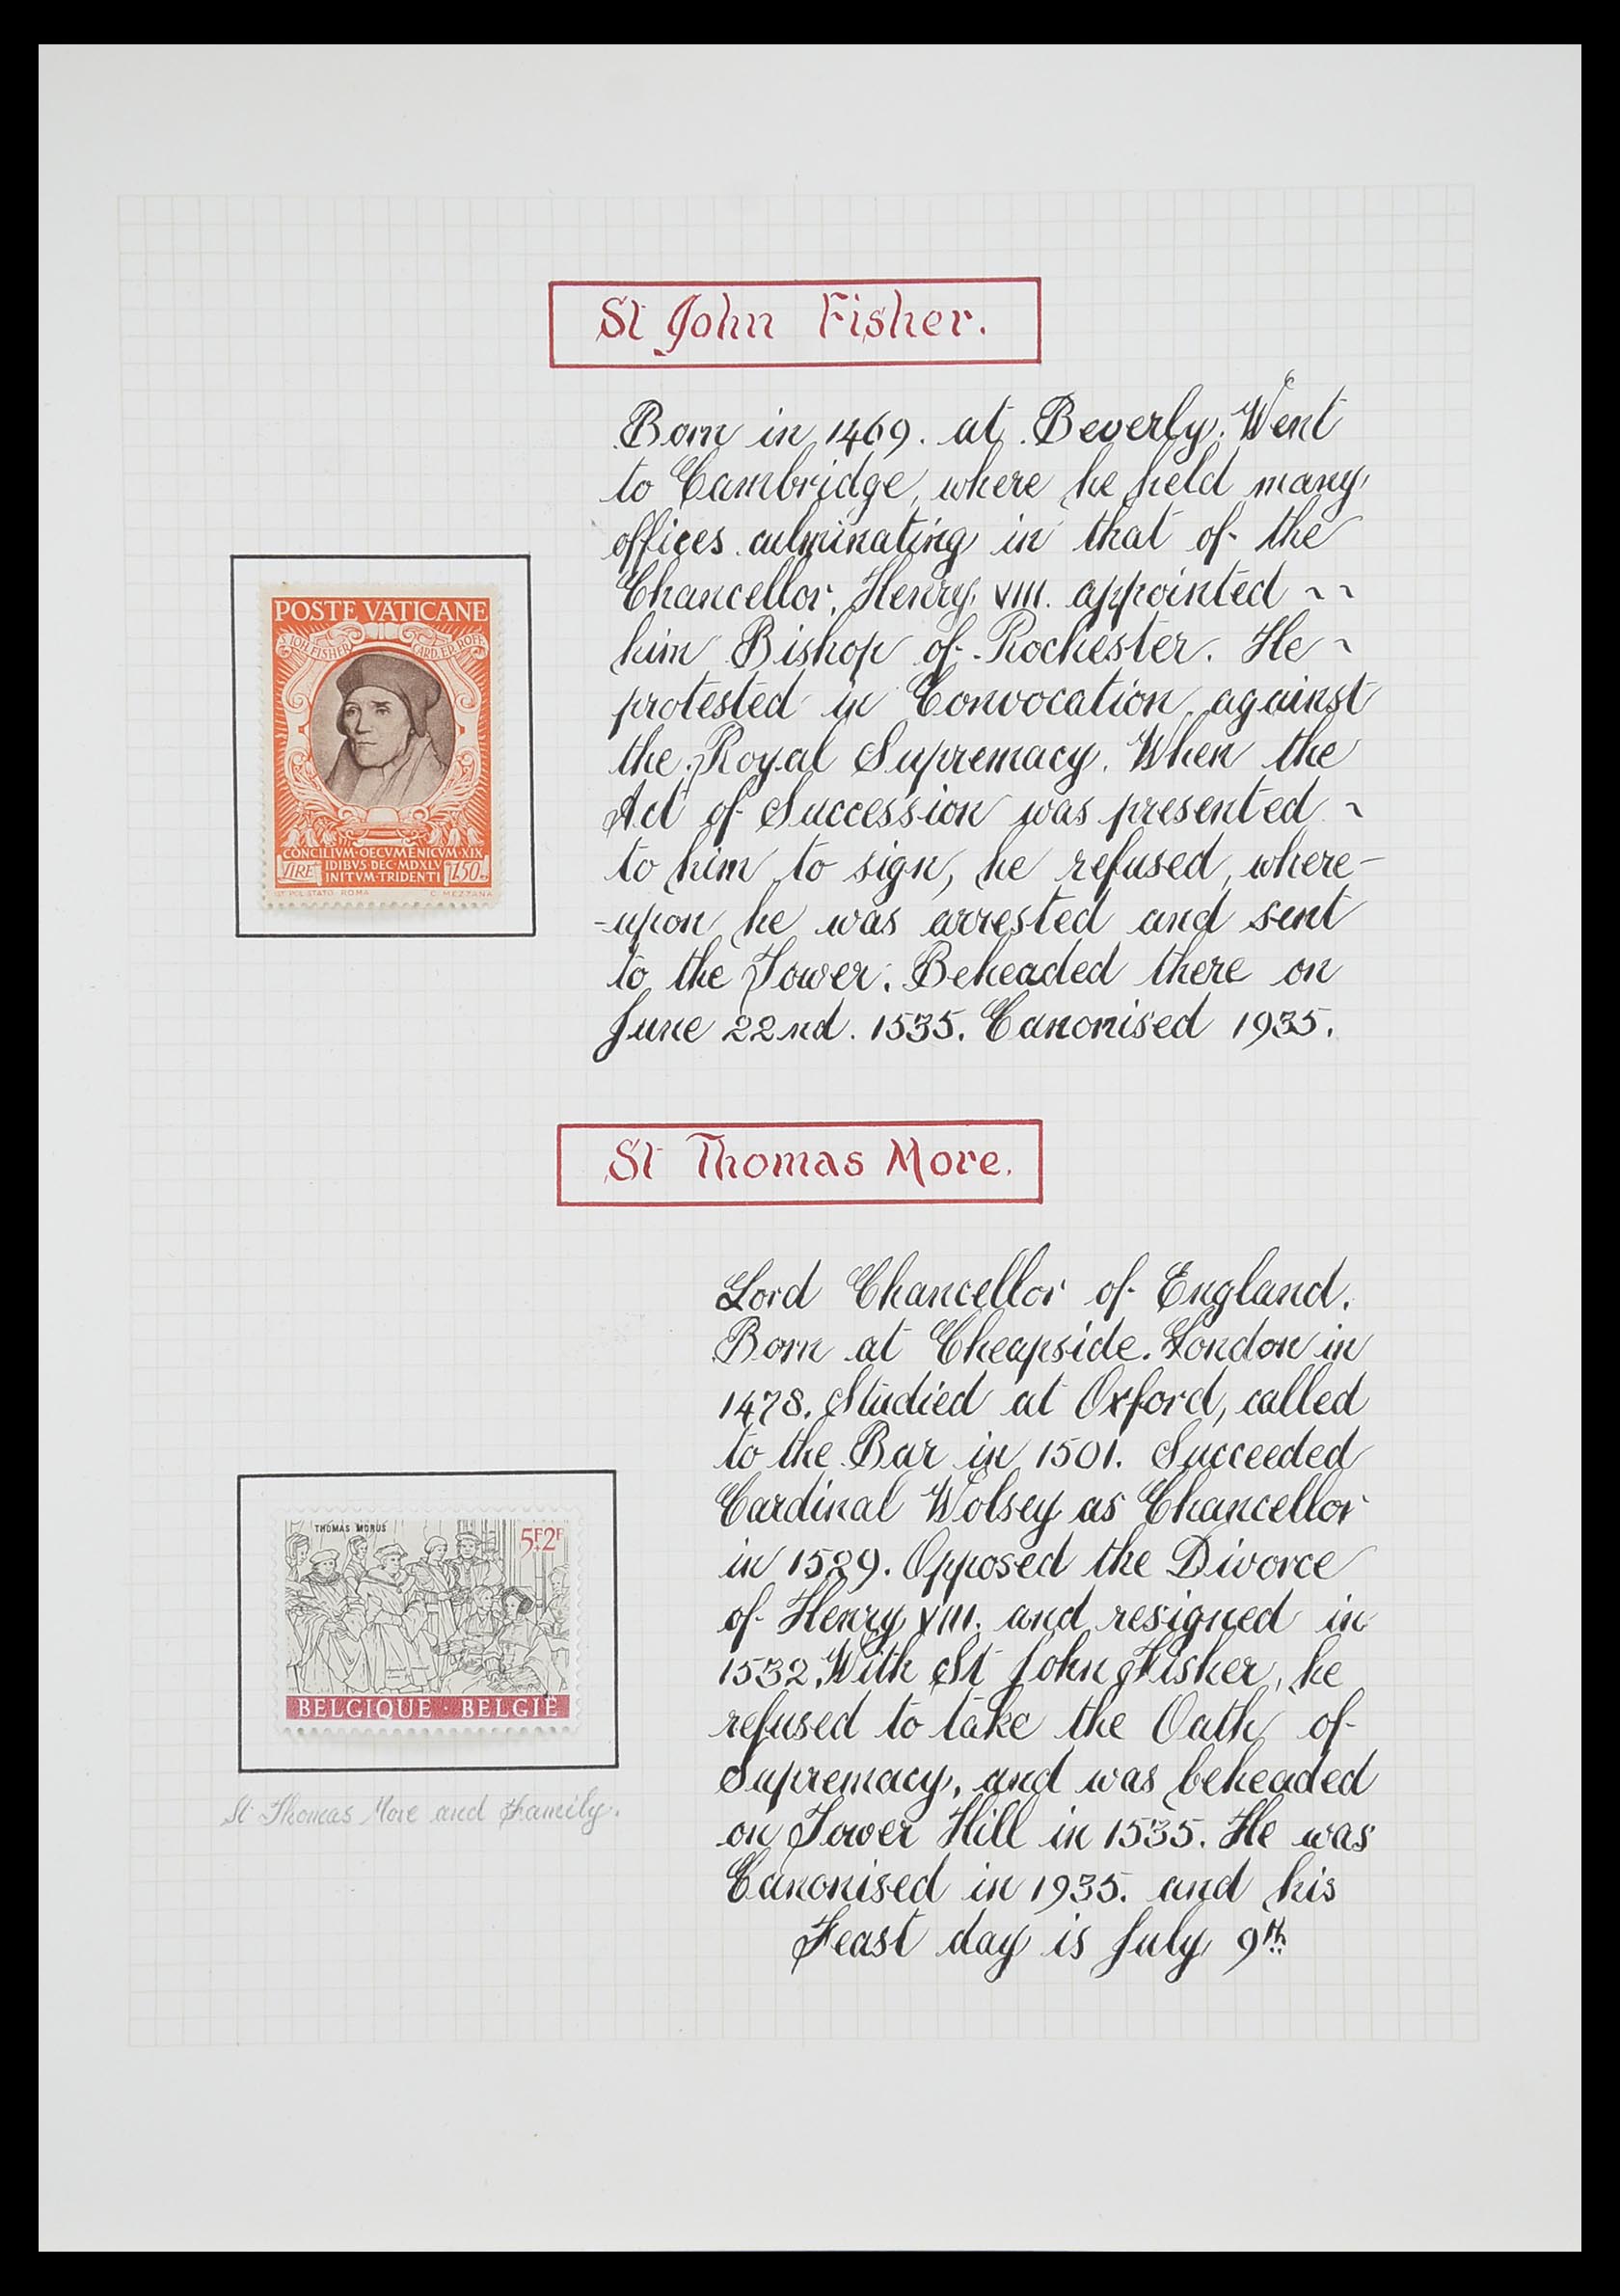 St John Fisher.
Born in 1469. at Beverly. Went
to Cambridge, where he held many
offices culminating in that of the
Chancellor. Henry VIII. appointed ~ ~
him Bishop of Rochester. He ~
protested in Convocation against
the Royal Supremacy. When the
Act of Succession was presented ~
to him to sign, he refused, where-
-upon he was arrested and sent
to the Tower. Beheaded there on
June 22nd. 1535. Canonised 1935.
POSTE VATICANE
S. IOH. FISHER CARD. EP. ROFF.
CONCILIVM·OECVMENICVM·XIX
IDIBVS DEC·MDXLV
INITVM·TRIDENTI
LIRE 1.50
IST. POL. STATO. ROMA C. MEZZANA
St Thomas More.
Lord Chancellor of England.
Born at Cheapside. London in
1478. Studied at Oxford, called
to the Bar in 1501. Succeeded
Cardinal Wolsey as Chancellor
in 1529. Opposed the Divorce
of Henry VIII. and resigned in
1532. With St John Fisher, he
refused to take the Oath of
Supremacy, and was beheaded
on Tower Hill in 1535. He was
Canonised in 1935. and his
Feast day is July 9th
THOMAS MORUS
5F+2F
BELGIQUE · BELGIË
St Thomas More and Family.